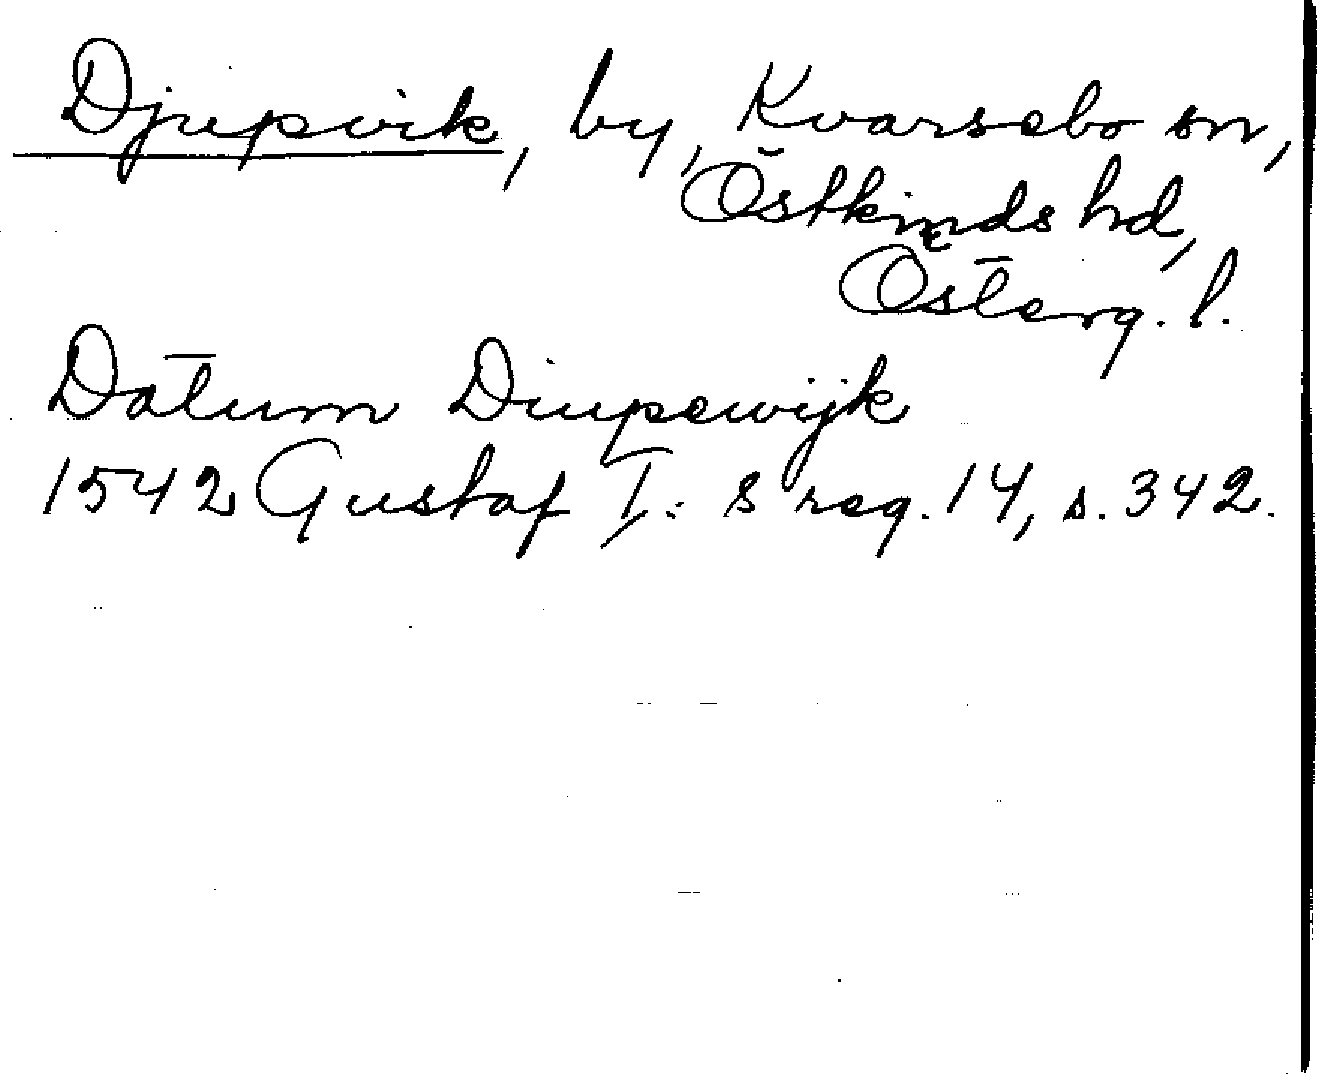 Djupvik, by, Kvarsebo sn,
Östkinds hd,
Österg. l.
Datum Diupewijk
1542 Gustaf I:s reg. 14, s. 342.